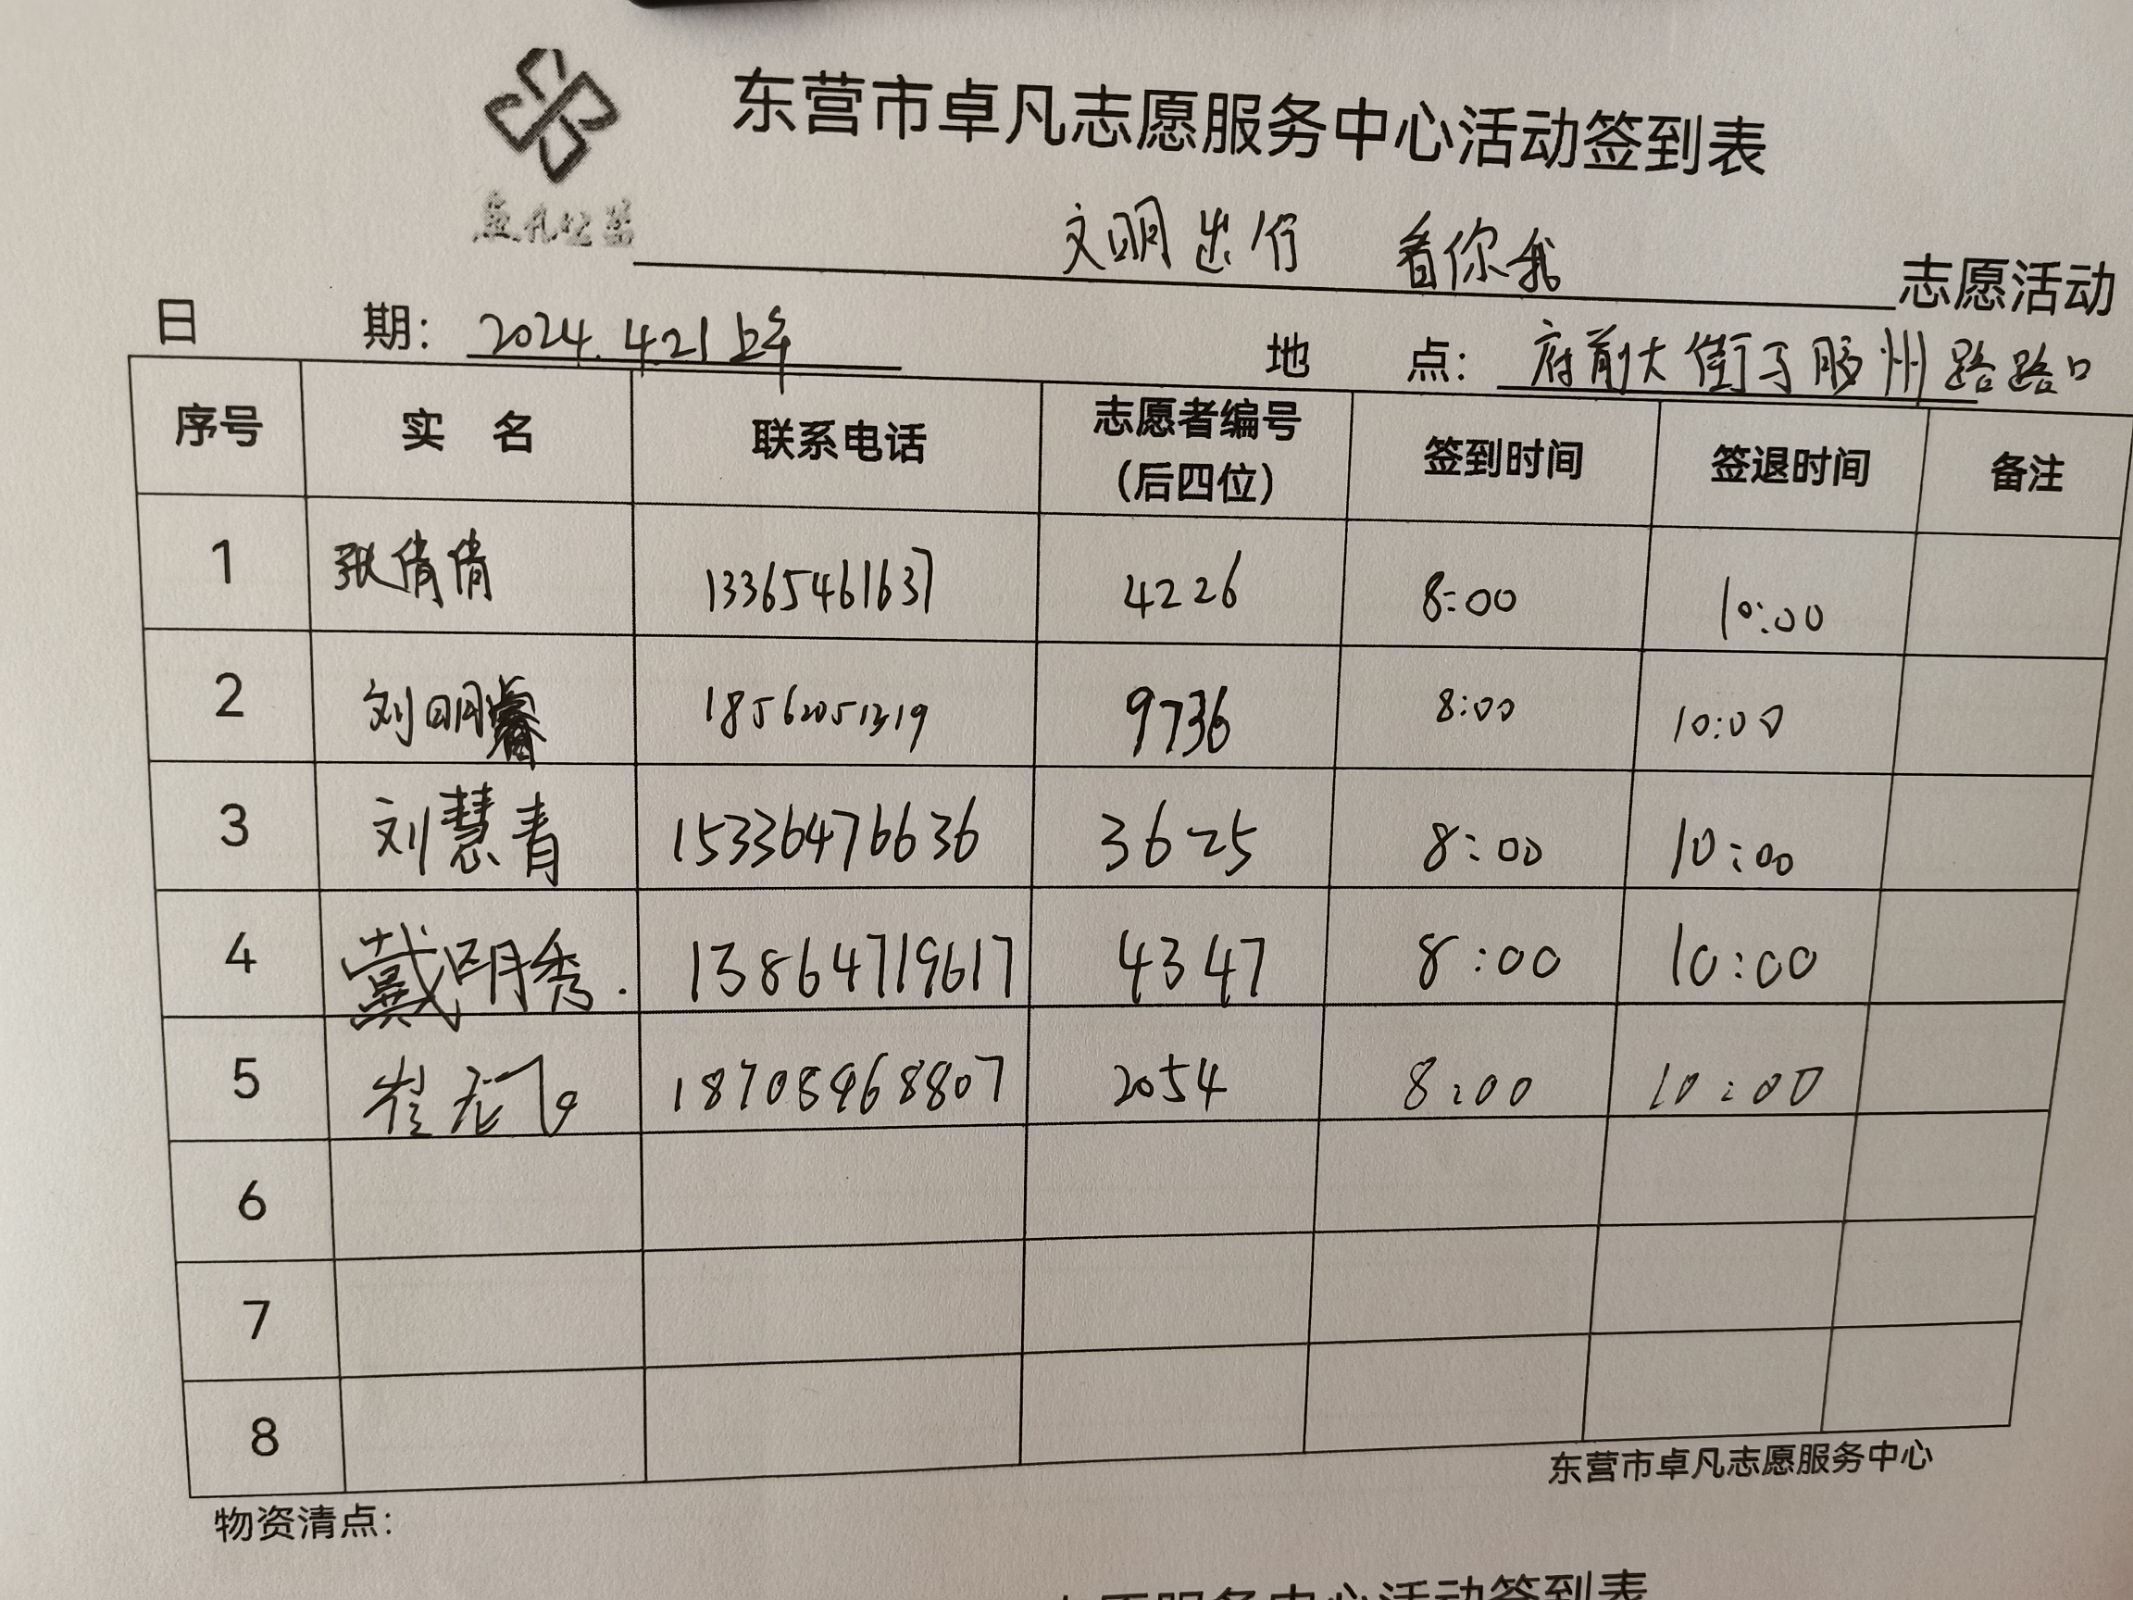 东营市卓凡志愿服务中心活动签到表
文明出行 看你我 志愿活动
日 期: 2024.4.21上午 地 点: 府前大街于胶州路路口
序号 实名 联系电话 志愿者编号(后四位) 签到时间 签退时间 备注
1 张倩倩 13365461637 4226 8:00 10:00
2 刘明睿 18562051319 9736 8:00 10:00
3 刘慧青 15336476636 3625 8:00 10:00
4 戴明秀. 13864719617 4347 8:00 10:00
5 崔 18708968807 2054 8:00 10:00
6
7
8
东营市卓凡志愿服务中心
物资清点:
志愿服务中心活动签到表